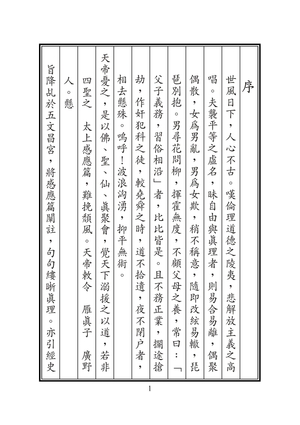 序
世風日下，人心不古。嘆倫理道德之陵夷，悲解放主義之高
唱。夫襲平等之虛名，昧自由與真理者，則易合易離，偶聚
偶散，女爲男亂，男爲女欺，稍不稱意，隨即改絃易轍，琵
琶別抱。男尋花問柳，揮霍無度，不顧父母之養，常曰：「
父子義務，習俗相沿」者，比比皆是。且不務正業，攔途搶
劫，作奸犯科之徒，較堯舜之時，道不拾遺，夜不閉户者，
相去懸殊。嗚呼！波浪洶湧，抑平無術。
天帝憂之，是以佛、聖、仙、眞聚會，覺天下溺援之以道，若非
四聖之　太上感應篇，難挽頹風。天帝敕令　雁眞子　廣野
人。懸
旨降乩於五文昌宮，將感應篇闡註，句句縷晰眞理。亦引經史
1